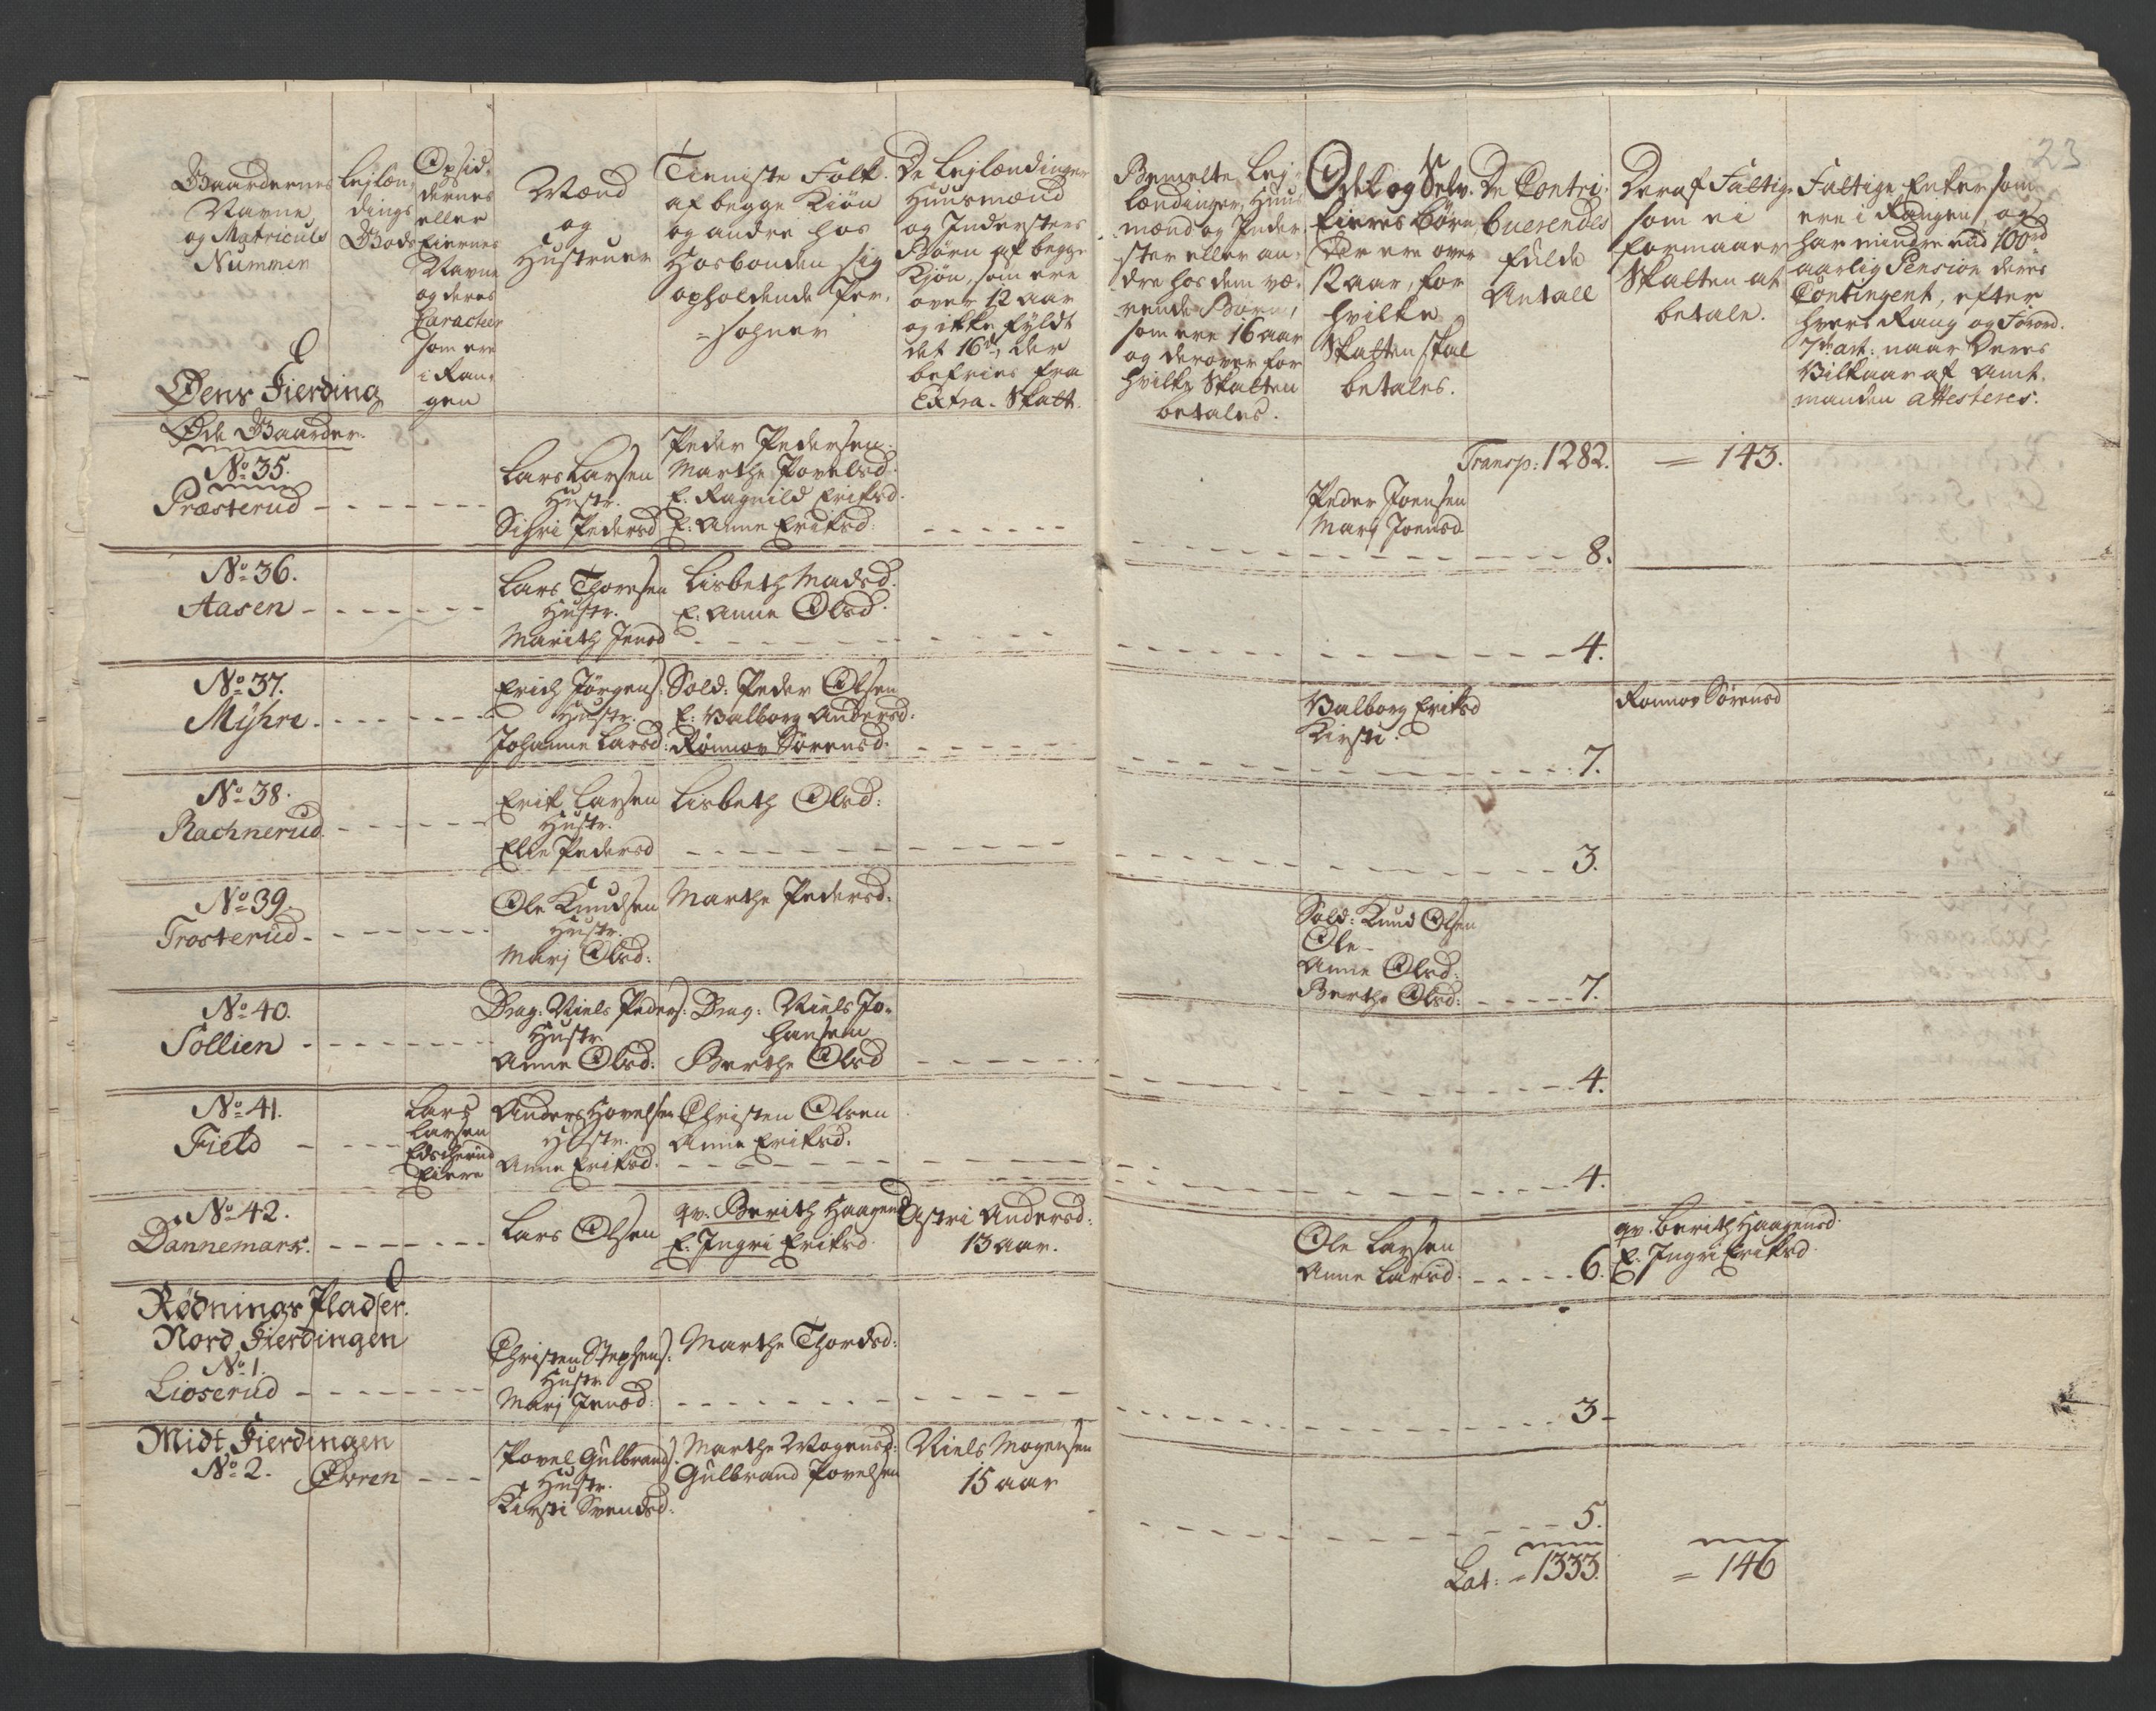 23
Gaardernes
Navne
og Matriculs
Nummer
Lejlæn,
dings
Gods
Opsid,
dernes
eller
Eiernes
Navne
og deres
Caracteer
som ere
i Ran,
gen
Mænd
og
Hustruer
Tieniste Folk
af begge Kiøn
og andre hos
Hosbonden sig
opholdende Per,
sohner
De Lejlændinger
Huusmænd
og Indersters
Børn af begge
Kjøn, som ere
over 12 aar
og ikke fyldt
det 16de, der
befries fra
Extra-Skatt.
Bemelte Lej,
lændinger, Huus
mænd og Inder,
ster eller an,
dre hos dem væ,
rende Børn,
som ere 16 aar
og derover for
hvilke Skatten
betales.
Odel og Selv,
Eieres Børn
der ere over
12 aar, for
hvilke
Skatten skal
betales.
De Contri,
buerendes
fulde
Antall
Deraf Fattige
som ei
formaaer
Skatten at
betale.
Fattige Enker som
ere i Rangen, og
har mindre end 100rd
aarlig Pension deres
Contingent, efter
hvers Rang og Forord.
7de art: naar Deres
Vilkaar af Amt,
manden attesteres.
Øens Fierding
Øde Gaarder.
Transp: 1282. = 143.
No 35.
Præsterud
Lars Larsen
Hustr.
Sigri Pedersd
Peder Pedersen
Marthe Povelsd.
E. Ragnild Eriksd.
E. Anne Eriksd.
Peder Joensen
Marj Joensd
8.
No 36.
Aasen
Lars Thoresen
Hustr.
Marith Jensd
Lisbeth Madsd.
E. Anne Olsd.
4.
No 37.
Myhre
Erich Jörgens:
Hustr.
Johanne Larsd:
Sold: Peder Olsen
E. Valborg Andersd.
Rönnov Sörensd.
Valborg Eriksd
Kirsti
7.
Ronnov Sørensd
No 38.
Rachnerud
Erik Larsen
Hustr.
Elie Pedersd
Lisbeth Olsd:
3.
No 39.
Trosterud
Ole Knudsen
Hustr.
Marj Olsd:
Marthe Pedersd:
Sold: Knud Olsen
Ole
Anne Olsd:
Berthe Olsd:
7.
No 40.
Sollien
Drag: Niels Peders:
Hustr
Anne Olsd:
Drag: Niels Jo,
hansen
Berthe Olsd
4.
No 41.
Field
Lars
Larsen
Eiere
Anders Hovelsen
Hustr.
Anne Eriksd.
Christen Olsen
Anne Eriksd.
4.
No 42.
Dannemark.
Lars Olsen
qv. Berith Haagensd
E. Ingri Eriksd
Astri Andersd:
13 aar.
Ole Larsen
Anne Larsd.
6.
qv. Berith Haagensd.
E. Ingri Eriksd
Rødnings Pladser.
Nord Fierdingen
No 1.
Lioserud
Christen Stephens:
Hustr
Marj Jensd:
Marthe Thordsd:
3
Midt Fierdingen
No 2. Ouren
Povel Gulbrands:
Hustr.
Kirsti Svendsd:
Marthe Mogensd:
Gulbrand Povelsen
Niels Mogensen
15 aar
5.
Lat: = 1333. = 146